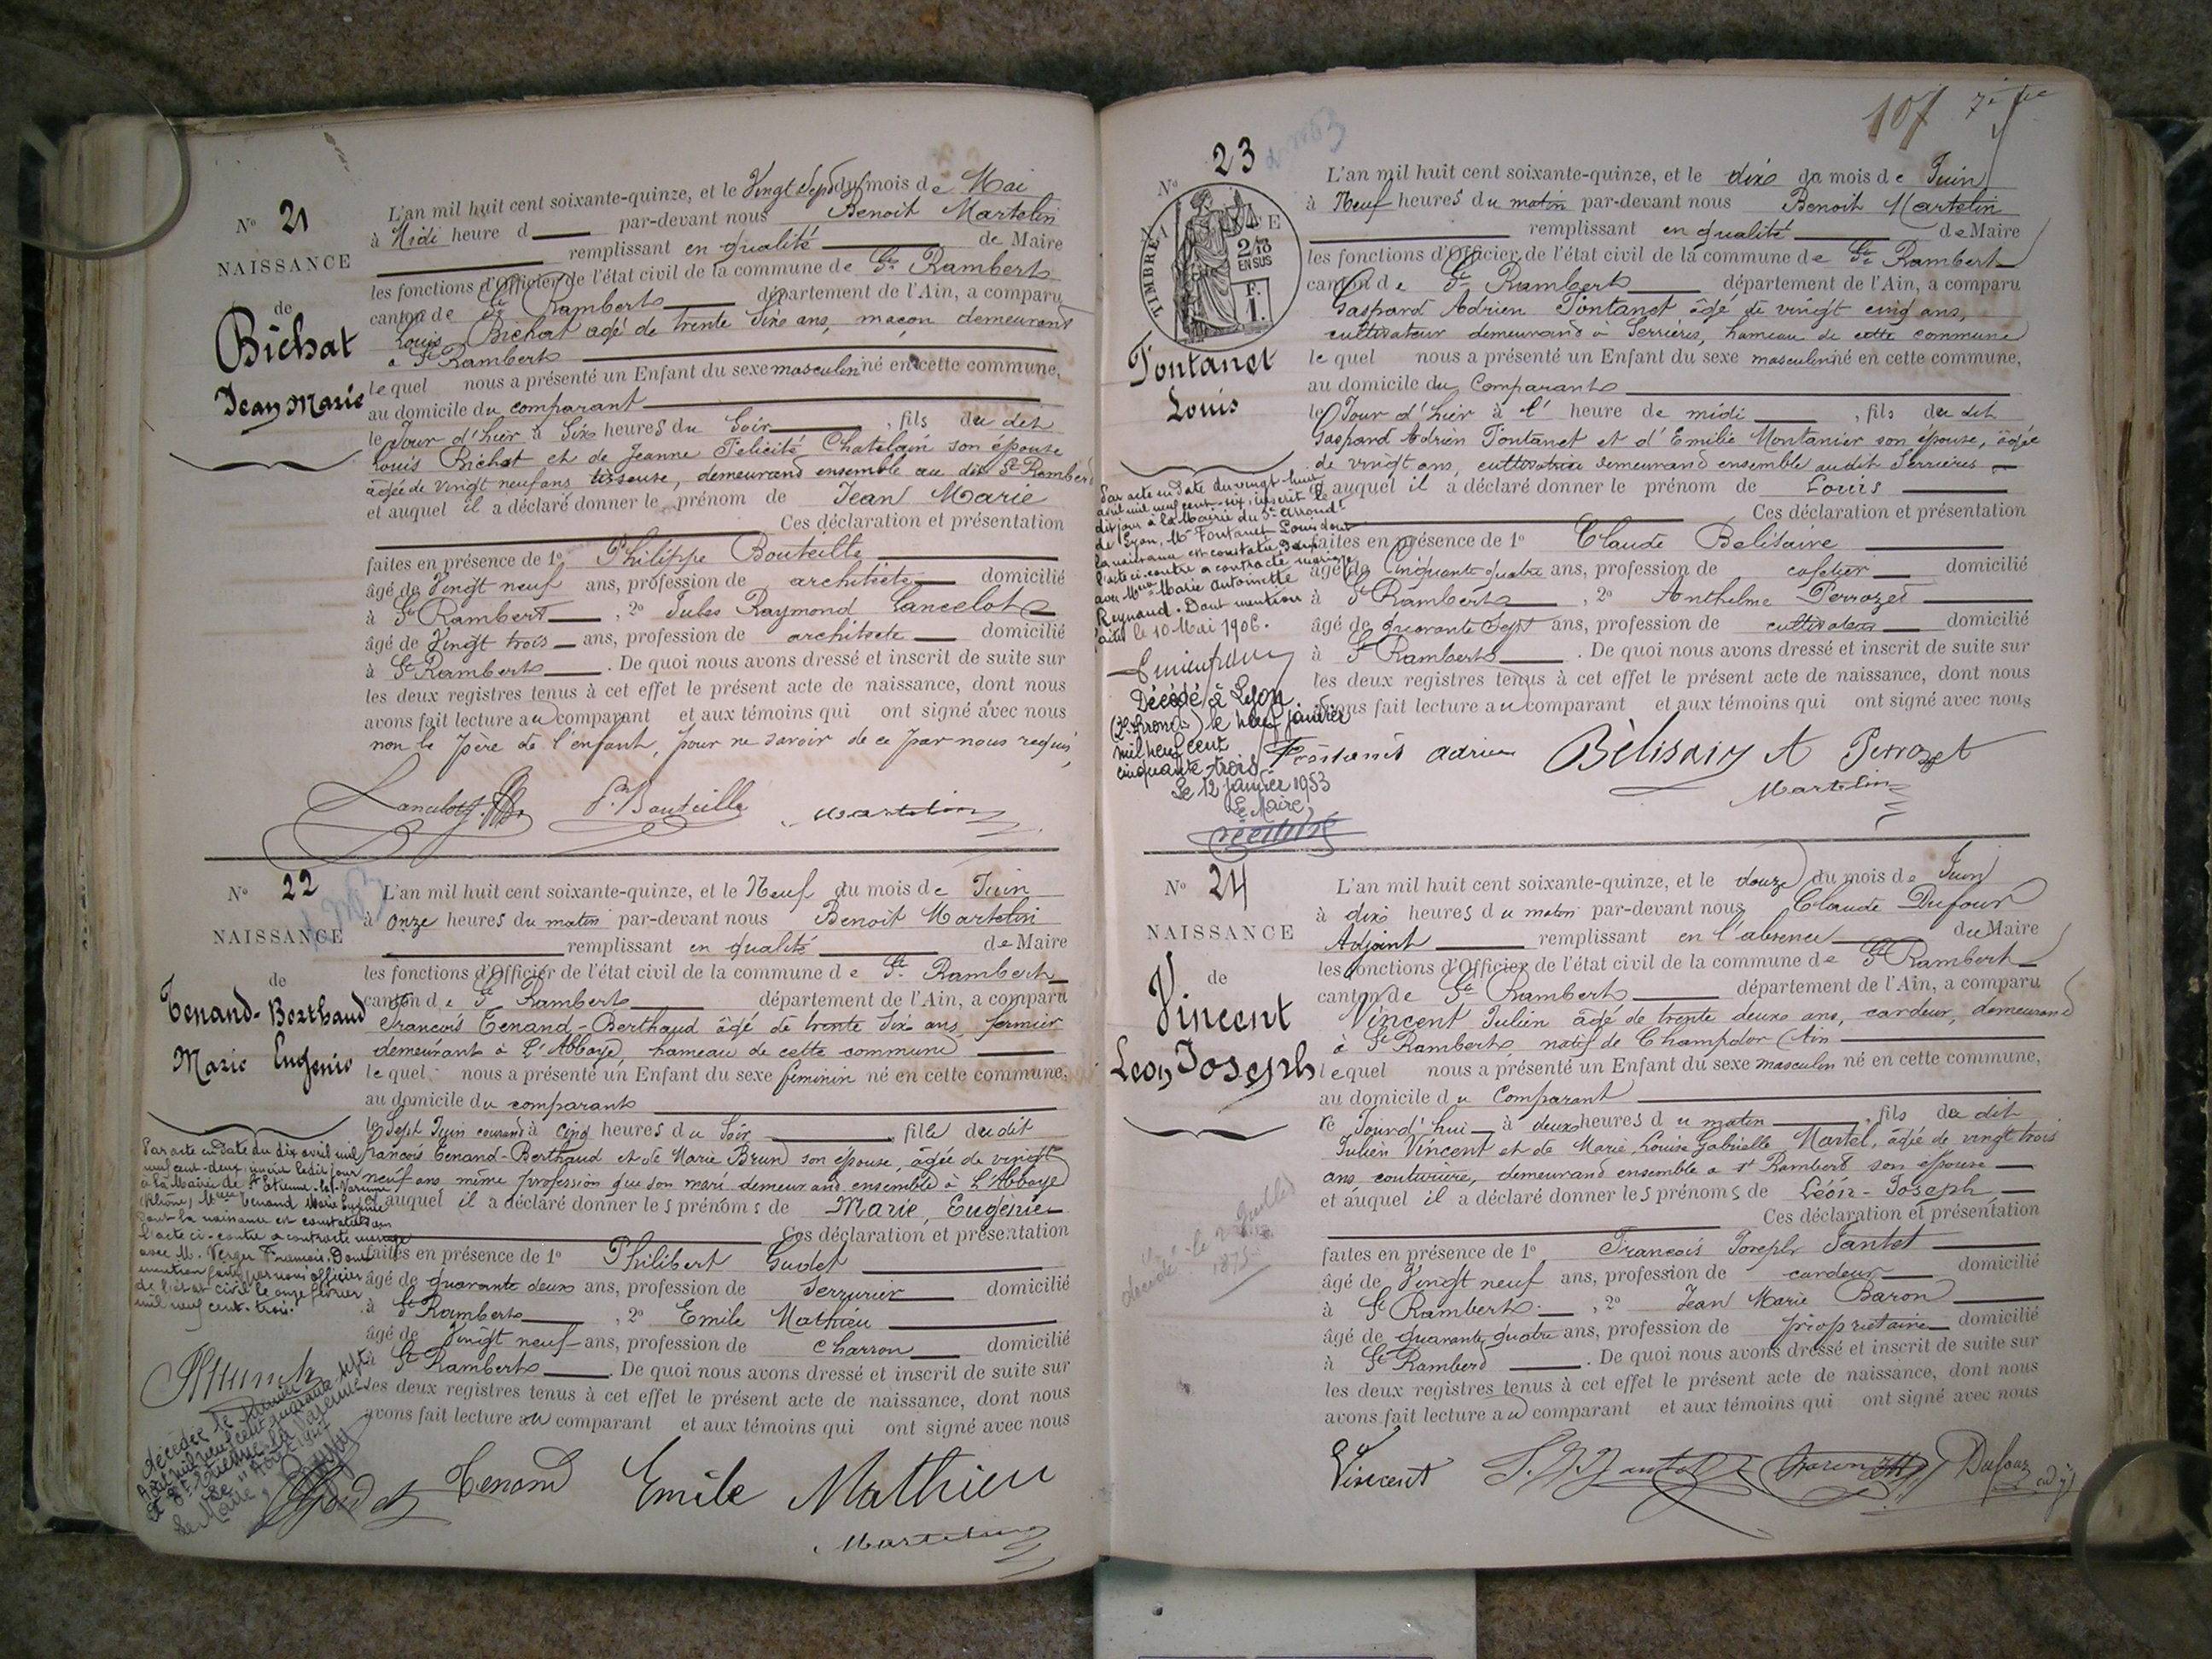 N° 21
NAISSANCE
de
Bichat
Jean Marie
L'an mil huit cent soixante-quinze, et le Vingt Sept du mois de Mai
à Midi heure d par-devant nous Benoit Martelin
remplissant en qualité de Maire
les fonctions d'Officier de l'état civil de la commune de St Rambert
canton de St Rambert département de l'Ain, a comparu
Louis Bichat agé de trente Six ans, maçon demeurant
à St Rambert
lequel nous a présenté un Enfant du sexe masculin né en cette commune,
au domicile du comparant
le Jour d'hier à Six heures du Soir, fils du dit
Louis Bichat et de Jeanne Félicité Chatelain son épouse
agée de vingt neuf ans tisseuse, demeurant ensemble au dit St Rambert
et auquel il a déclaré donner le prénom de Jean Marie
Ces déclaration et présentation
faites en présence de 1° Philippe Bouteille
âgé de Vingt neuf ans, profession de architecte domicilié
à St Rambert, 2° Jules Raymond Lancelot
âgé de Vingt trois ans, profession de architecte domicilié
à St Rambert. De quoi nous avons dressé et inscrit de suite sur
les deux registres tenus à cet effet le présent acte de naissance, dont nous
avons fait lecture au comparant et aux témoins qui ont signé avec nous
non le père de l'enfant, pour ne savoir de ce par nous requis,
Lancelot P. Bouteille Martelin
N° 22
NAISSANCE
de
Tenand-Berthaud
Marie Eugénie
L'an mil huit cent soixante-quinze, et le Neuf du mois de Juin
à onze heures du matin par-devant nous Benoit Martelin
remplissant en qualité de Maire
les fonctions d'Officier de l'état civil de la commune de St Rambert
canton de St Rambert département de l'Ain, a comparu
François Tenand-Berthaud âgé de trente Six ans, fermier
demeurant à l'Abbaye, hameau de cette commune
lequel nous a présenté un Enfant du sexe féminin né en cette commune,
au domicile du comparant
le Sept Juin courant à Cinq heures du Soir, fille du dit
François Tenand-Berthaud et de Marie Brun son épouse, âgée de vingt
neuf ans même profession que son mari demeurant ensemble à L'Abbaye
et auquel il a déclaré donner les prénoms de Marie, Eugénie
Ces déclaration et présentation
faites en présence de 1° Philibert Gudet
âgé de quarante deux ans, profession de Serrurier domicilié
à St Rambert, 2° Emile Mathieu
âgé de Vingt neuf ans, profession de Charron domicilié
à St Rambert. De quoi nous avons dressé et inscrit de suite sur
les deux registres tenus à cet effet le présent acte de naissance, dont nous
avons fait lecture au comparant et aux témoins qui ont signé avec nous
Par acte en date du dix avril mil
neuf cent-deux, inscrit ledit jour
à la Mairie de St Etienne-la-Varenne
(Rhône), Melle Tenand Marie Eugénie
dont la naissance est constatée dans
l'acte ci-contre a contracté mariage
avec M. Verger François. Dont
mention faite par nous officier
de l'état civil le onze février
mil neuf cent-trois.
Décédée le premier
Août mil neuf cent quarante sept
à St Etienne la Varenne
Le Août 1947
Le Maire
Tenand Emile Mathieu
Martelin
107
N° 23
TIMBRE
2/10
EN SUS
F.
1.
Fontanet
Louis
L'an mil huit cent soixante-quinze, et le dix du mois de Juin
à Neuf heures du matin par-devant nous Benoit Martelin
remplissant en qualité de Maire
les fonctions d'Officier de l'état civil de la commune de St Rambert
canton de St Rambert département de l'Ain, a comparu
Gaspard Adrien Fontanet âgé de vingt cinq ans,
cultivateur demeurant à Serrières, hameau de cette commune
lequel nous a présenté un Enfant du sexe masculin né en cette commune,
au domicile du Comparant
le Jour d'hier à l' heure de midi, fils du dit
Gaspard Adrien Fontanet et d'Emilie Montanier son épouse, âgée
de vingt ans, cultivatrice demeurant ensemble audit Serrières
auquel il a déclaré donner le prénom de Louis
Ces déclaration et présentation
faites en présence de 1° Claude Belisaire
âgé de Cinquante quatre ans, profession de cafetier domicilié
à St Rambert, 2° Anthelme Perrozet
âgé de quarante Sept ans, profession de cultivateur domicilié
à St Rambert. De quoi nous avons dressé et inscrit de suite sur
les deux registres tenus à cet effet le présent acte de naissance, dont nous
avons fait lecture au comparant et aux témoins qui ont signé avec nous
Par acte en date du vingt-huit
avril mil neuf cent-six, inscrit le
dit jour à la Mairie du 3e arrondt
de Lyon, Mr Fontanet Louis dont
la naissance est constatée dans
l'acte ci-contre a contracté mariage
avec Melle Marie Antoinette
Reynaud. Dont mention
faite le 10 Mai 1906.
Décédé à Lyon
le neuf janvier
mil neuf cent
cinquante-trois
Le 12 janvier 1953
Le Maire,
Fontanet adrien Bélisair A Perrozet
Martelin
N° 24
NAISSANCE
de
Vincent
Léon Joseph
L'an mil huit cent soixante-quinze, et le douze du mois de Juin
à dix heures du matin par-devant nous Claude Dufour
Adjoint remplissant en l'absence du Maire
les fonctions d'Officier de l'état civil de la commune de St Rambert
canton de St Rambert département de l'Ain, a comparu
Vincent Julien âgé de trente deux ans, cardeur, demeurant
à St Rambert natif de Champdor (Ain
lequel nous a présenté un Enfant du sexe masculin né en cette commune,
au domicile du Comparant
ce Jourd'hui à deux heures du matin, fils du dit
Julien Vincent et de Marie Louise Gabrielle Martel, âgée de vingt trois
ans couturière, demeurant ensemble a st Rambert son épouse
et auquel il a déclaré donner les prénoms de Léon-Joseph
Ces déclaration et présentation
faites en présence de 1° François Joseph Jantet
âgé de Vingt neuf ans, profession de cardeur domicilié
à St Rambert, 2° Jean Marie Baron
âgé de quarante quatre ans, profession de propriétaire domicilié
à St Rambert. De quoi nous avons dressé et inscrit de suite sur
les deux registres tenus à cet effet le présent acte de naissance, dont nous
avons fait lecture au comparant et aux témoins qui ont signé avec nous
décédé le 2 Juillet
1875
Vincent Jantet Baron Dufour adj